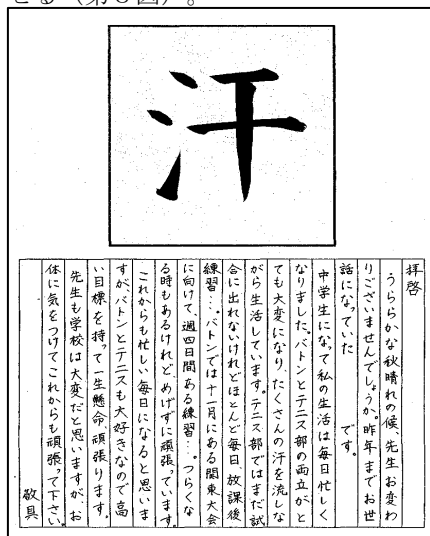 せる（第３図）。
汗
拝啓
うららかな秋晴れの候、先生お変わ
りございませんでしょうか。昨年までお世
話になっていた　　　です。
中学生になって私の生活は毎日忙しく
なりました。バトンとテニス部の両立がと
ても大変になり、たくさんの汗を流しな
がら生活しています。テニス部ではまだ試
合に出れないけれどほとんど毎日、放課後
練習…。バトンでは十一月にある関東大会
に向けて、週四日間ある練習…。つらくな
る時もあるけれど、めげずに頑張っています。
これからも忙しい毎日になると思いま
すが、バトンとテニスも大好きなので高
い目標を持って一生懸命、頑張ります。
先生も学校は大変だと思いますが、お
体に気をつけてこれからも頑張って下さい。
敬具